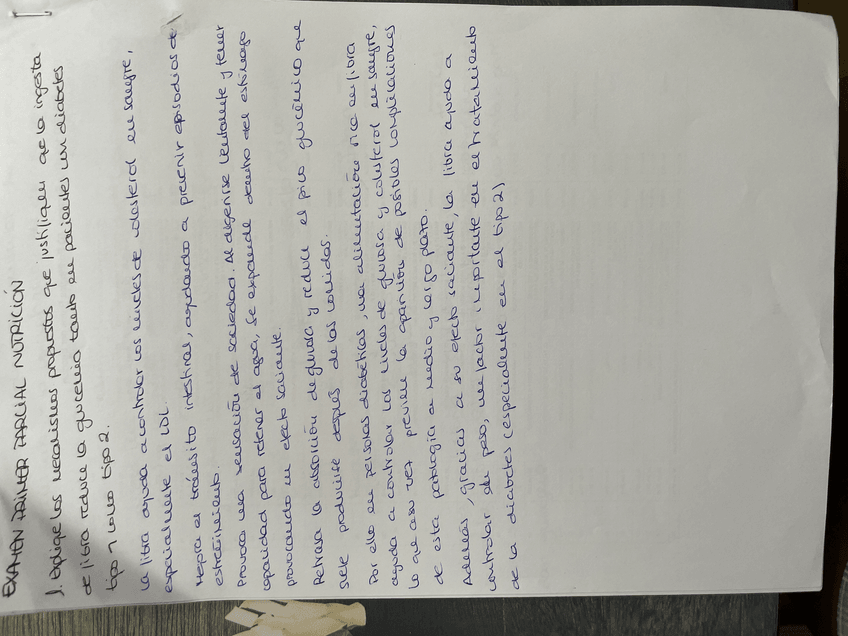 EXAMEN PRIMER PARCIAL NUTRICIÓN
1. Explique los mecanismos propuestos que justifiquen que la ingesta
de fibra reduce la glucemia tanto en pacientes con diabetes
tipo 1 como tipo 2.
La fibra ayuda a controlar los niveles de colesterol en sangre,
especialmente el LDL.
Mejora el tránsito intestinal, ayudando a prevenir episodios de
estreñimiento.
Provoca una sensación de saciedad. Al digerirse lentamente y tener
capacidad para retener el agua, se expande dentro del estómago
provocando un efecto saciante.
Retrasa la absorción de glucosa y reduce el pico glucémico que
suele producirse después de las comidas.
Por ello en personas diabéticas, una alimentación rica en fibra
ayuda a controlar los niveles de glucosa y colesterol en sangre,
lo que a su vez previene la aparición de posibles complicaciones
de esta patología a medio y largo plazo.
Además, gracias a su efecto saciante, la fibra ayuda a
controlar el peso, un factor importante en el tratamiento
de la diabetes (especialmente en el tipo 2)